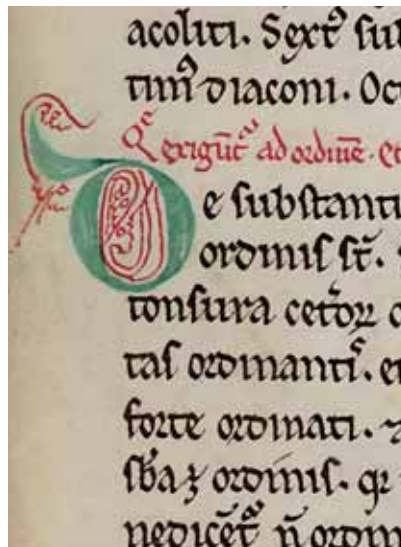 acoliti. Sextꝰ sub
timꝰ diaconi. Oc
Q̄ exigūt᷑ ad ordinē. et
De substanti
ordinis st̄.
tonsura cetoꝝ c
tas ordinanti. et
forte ordinati. ⁊
sb̄a ꝫ ordinis. qr
nedicēt n̄ ordin